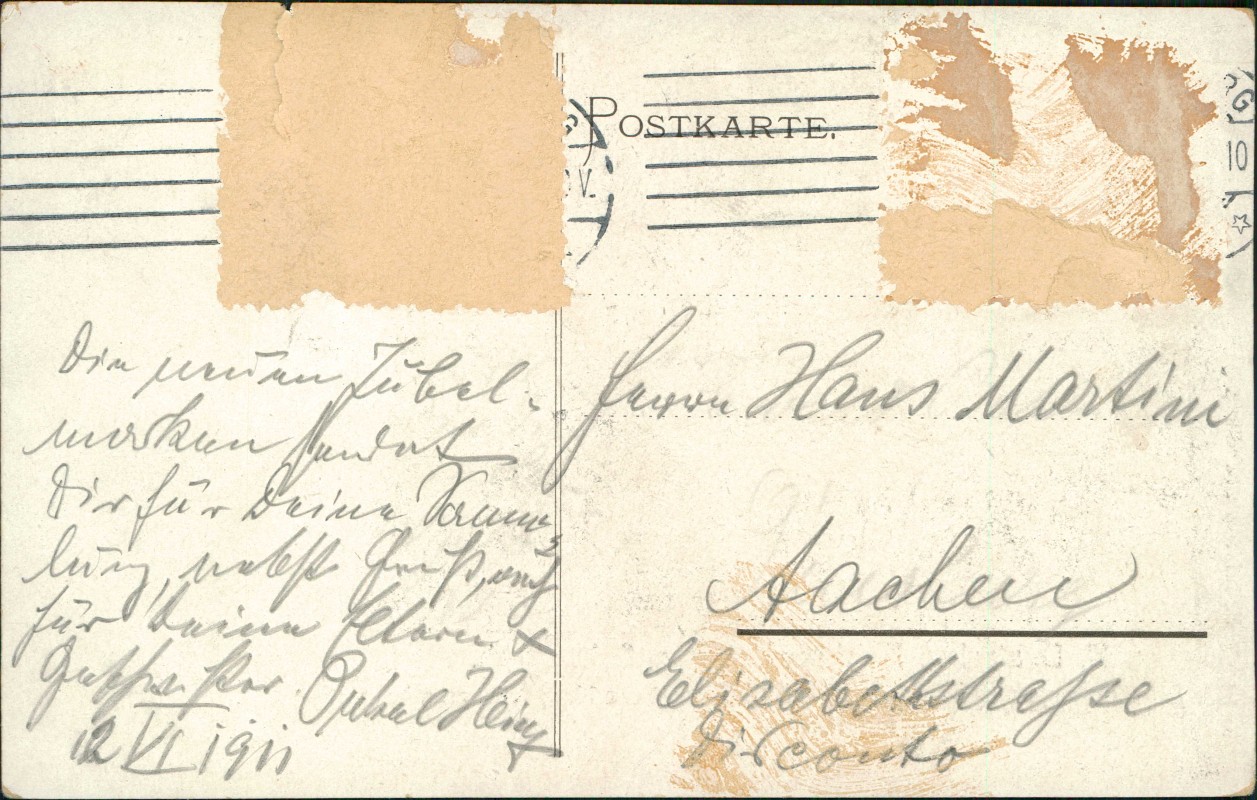 POSTKARTE.
G
V.
G
10
Die neuen Jubel-
marken sendet
Dir für Deine Samm-
lung, nebst Gruß, auch
für Deine Eltern &
Geschwister. Onkel Heinz
12 VI 1911
Herrn Hans Martini
Aachen
Elisabethstrasse
Disconto